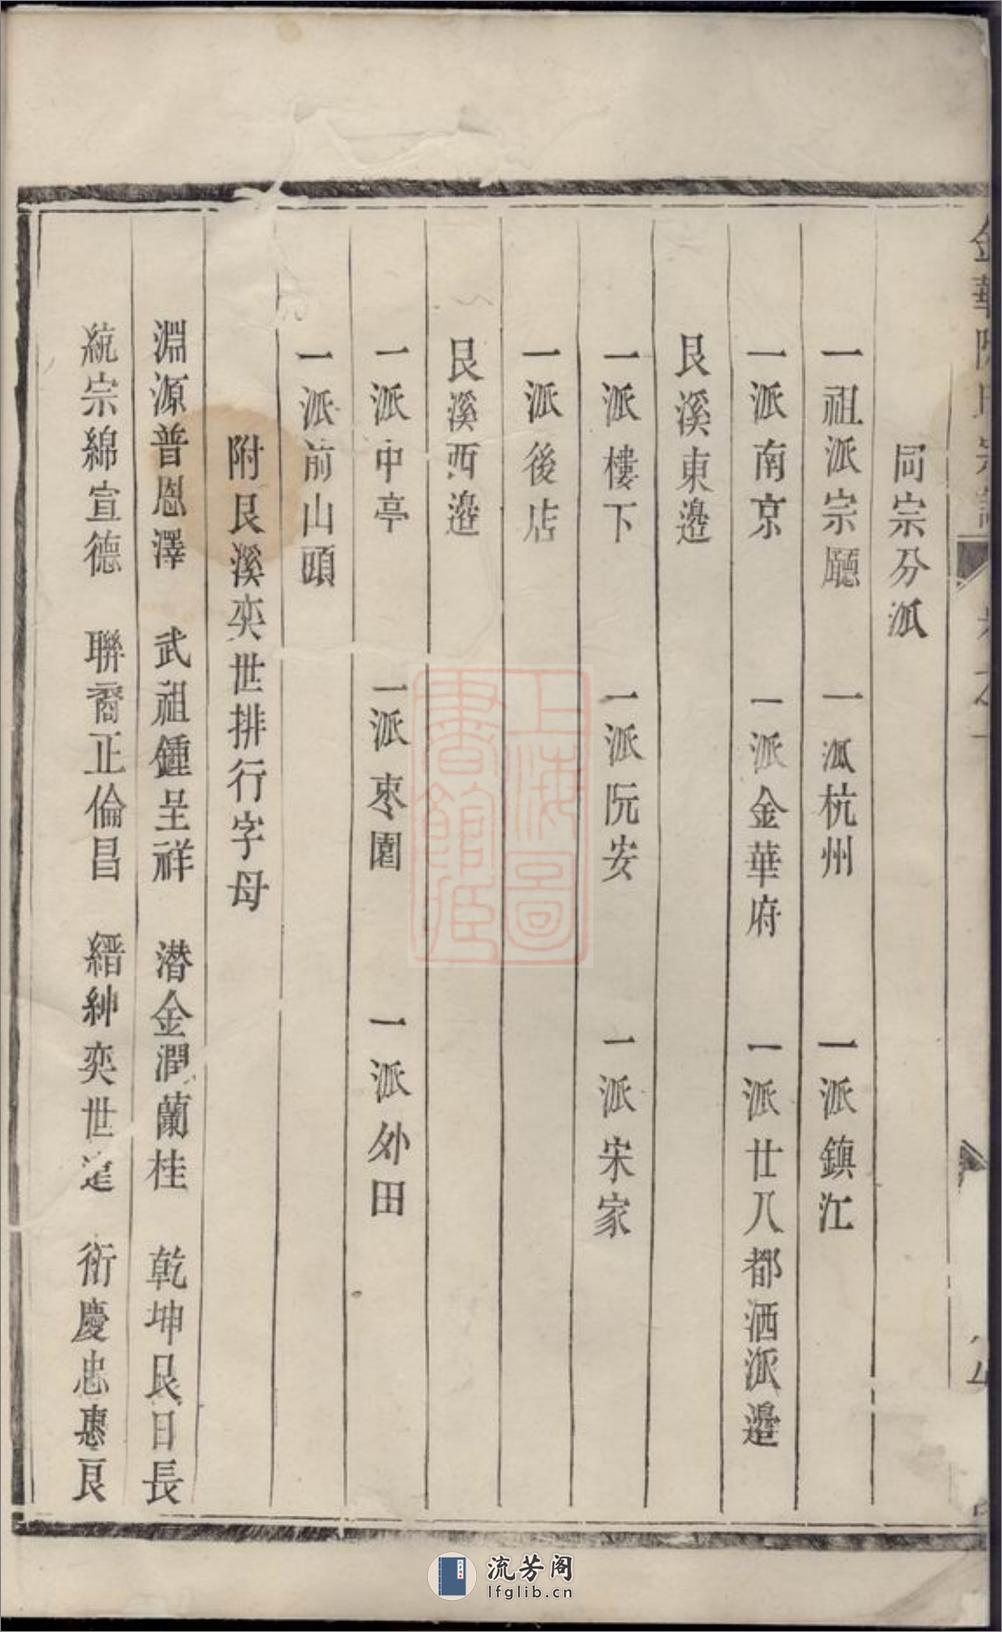 同宗分派
一祖派宗廳　一派杭州　一派鎮江
一派南京　一派金華府　一派廿八都洒派邉
艮溪東邉
一派樓下　一派阮安　一派宋家
一派後店
艮溪西邉
一派中亭　一派枣園　一派外田
一派前山頭
附艮溪奕世排行字母
淵源普恩澤　武祖鍾呈祥　潜金潤蘭桂　乾坤艮日長
統宗綿宣德　聯裔正倫昌　縉紳奕世遠　衍慶忠惠良
上海圖書館藏
流芳阁
lfglib.cn